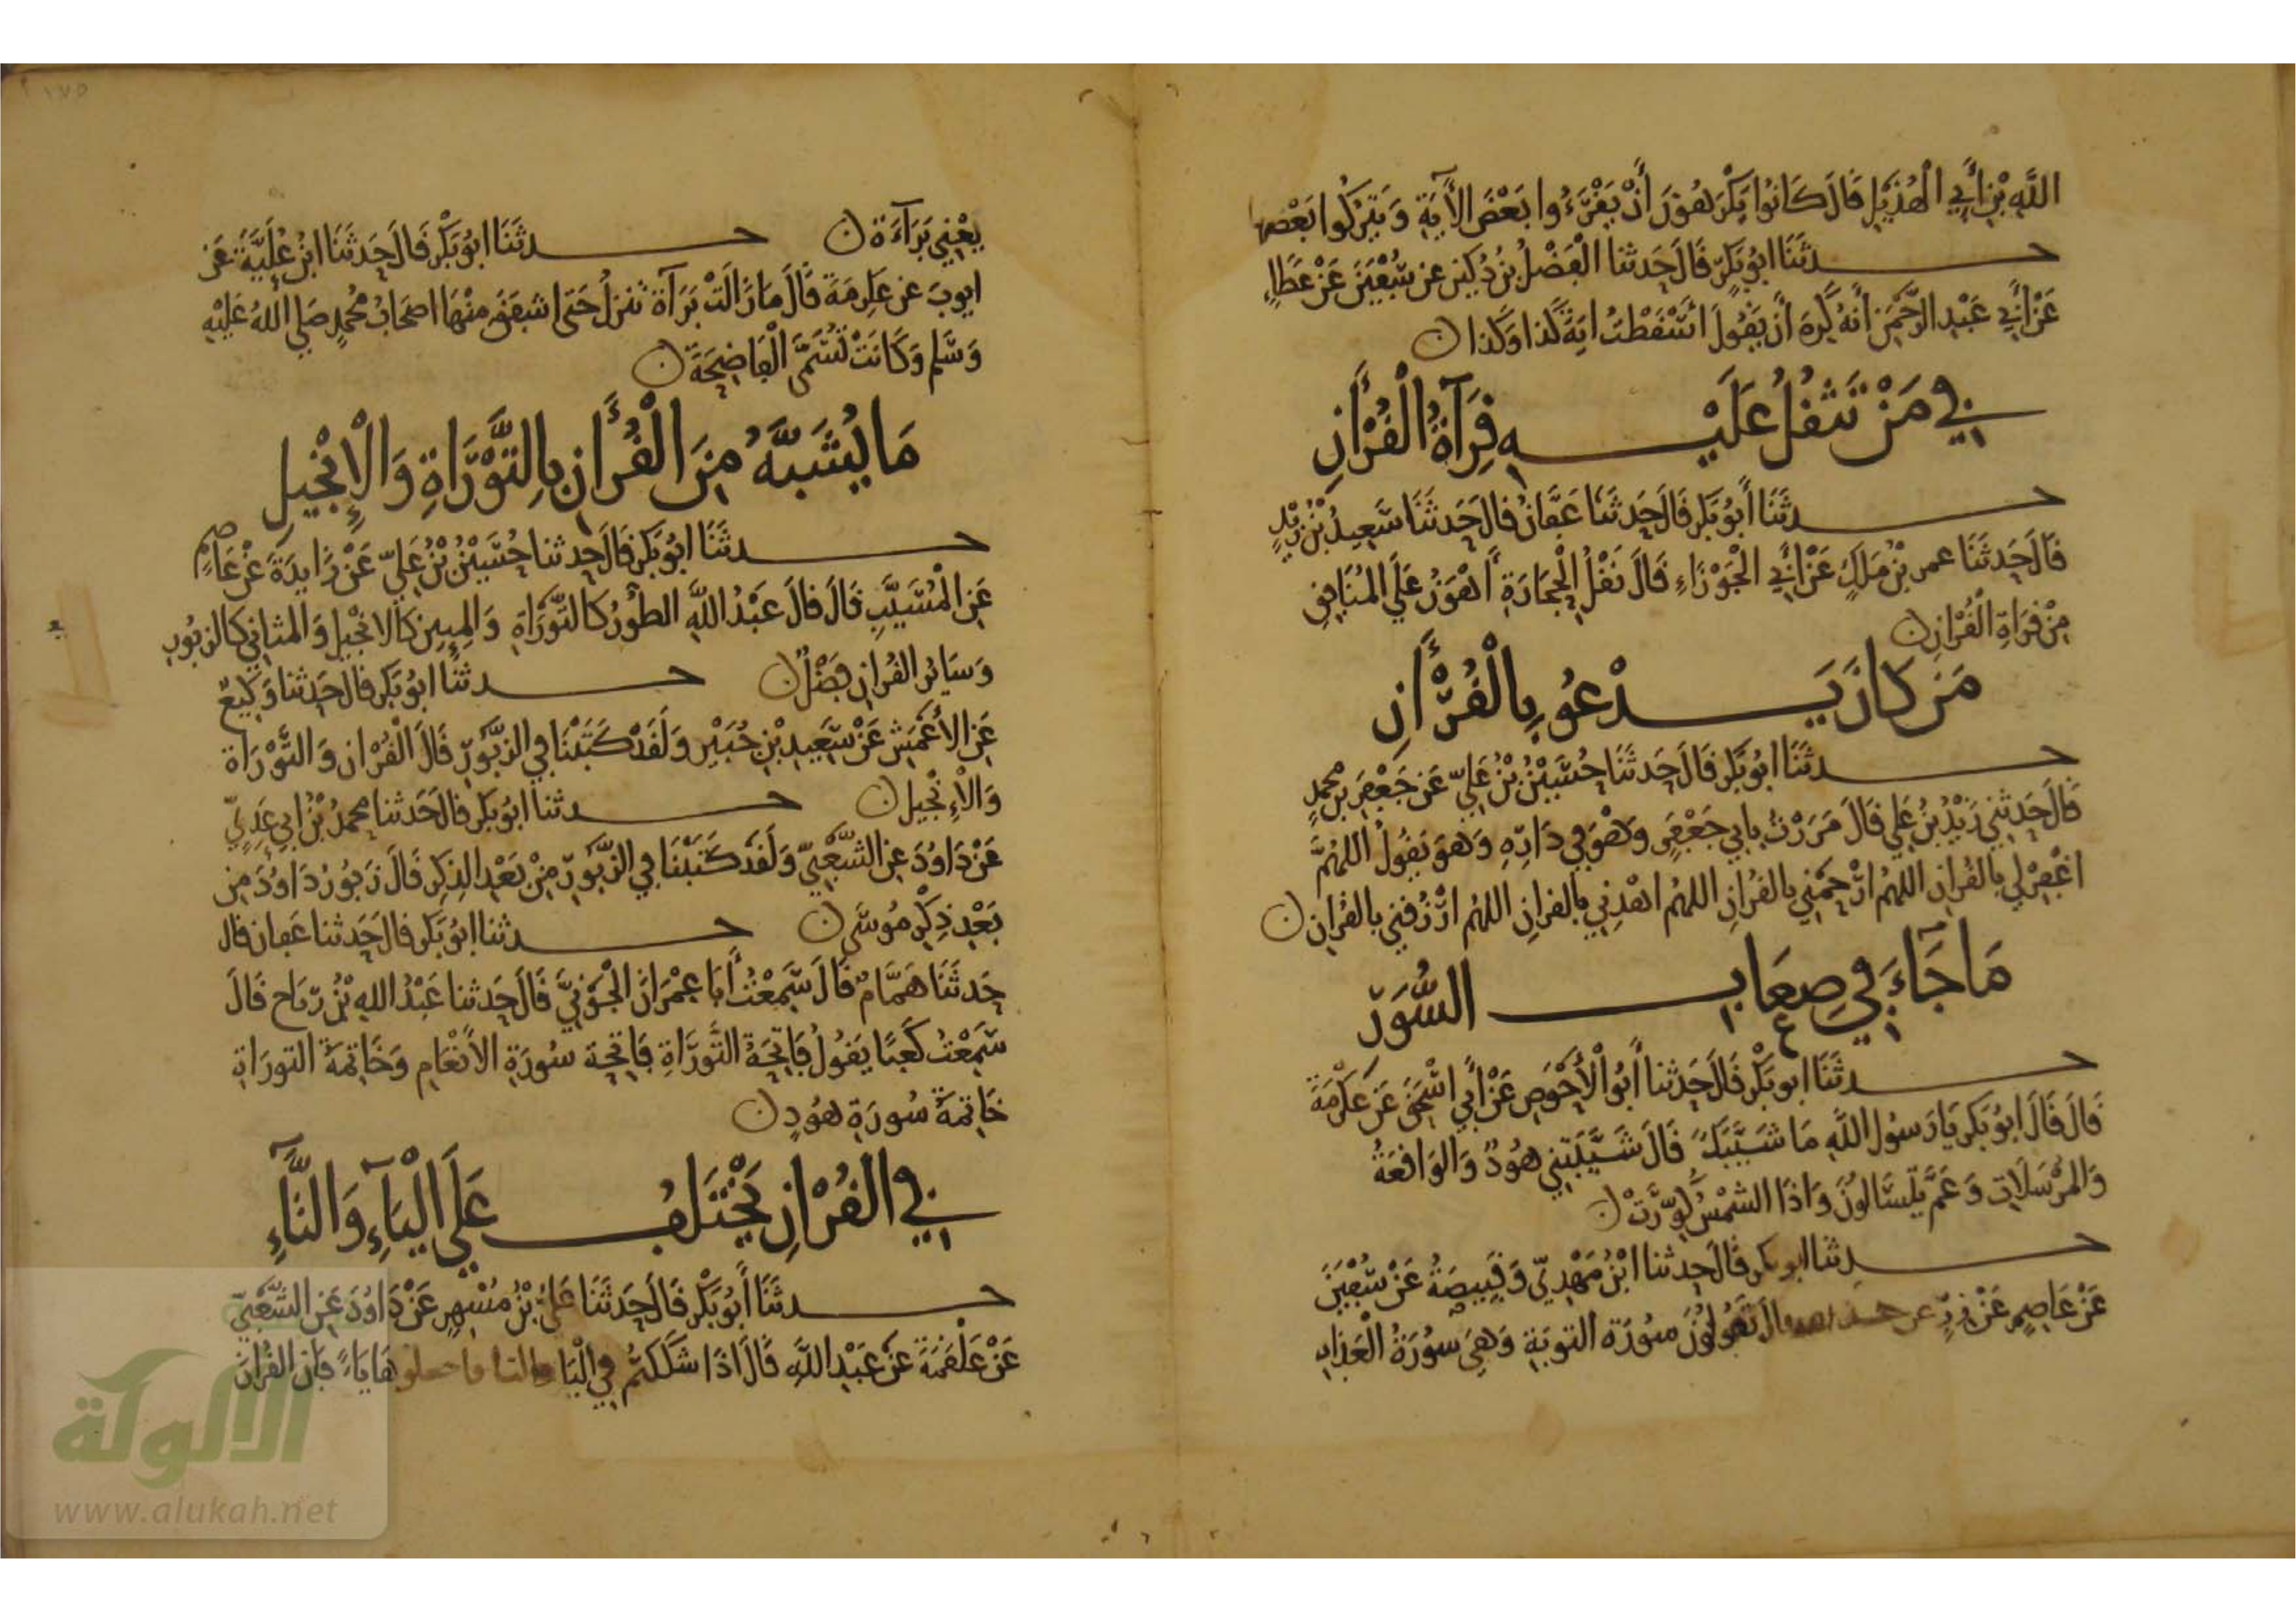 اللَّهِ بْنِ أَبِي الْهُذَيْلِ قَالَ كَانُوا يَكْرَهُونَ أَنْ يَقْرَءُوا بَعْضَ الْأَيَةِ وَيَتْرُكُوا بَعْضها
حدثَنَا ابُو بَكْرٍ قَالَ حَدثنا الْفَضْلُ بنُ دُكَينٍ عن سُفْيَنَ عَنْ عَطَاءٍ
عَنْ أَبِي عَبْدِ الرَّحْمَنِ أَنهُ كَرِهَ أَن يَقُولَ اسْقَطْتُ ايَةَ كَذا وَكَذا ن
فِي مَنْ تَثْقُلُ عَلَيْهِ قِرَآةُ الْقُرْأَنِ
حدثَنَا أَبُو بَكرٍ قَالَ حَدثَنَا عَفَّانُ قَالَ حَدثَنَا سَعِيدُ بْنُ زَيْدٍ
قَالَ حَدثَنَا عمرو بْنُ مَلَكٍ عَنْ أَبِي الْجَوْزَاءِ قَالَ نَقْلُ الْحِجَارَةِ أَهْوَنُ عَلَى الْمُنَافِقِ
مِنْ قِرَاةِ الْقُرْانِ ن
مَن كَانَ يَدْعُو بِالْقُرْأَنِ
حدثَنَا ابُو بَكرٍ قَالَ حَدثَنَا حُسَيْنُ بْنُ عَلِيٍّ عَن جَعْفَرِ بنِ محمدٍ
قَالَ حَدثَنِي زَيْدُ بنُ عَلِي قَالَ مَرَرْتُ بِابِي جَعْفَرٍ وَهْوَ فِي دَارِهِ وَهْوَ يَقُولُ اللهُمَّ
اغْفِرْ لِي بِالْقُرانِ اللهُم ارْحَمْنِي بالْقُرانِ اللهُم اهْدِنِي بالقرانِ اللهُم ارْزُقْنِي بالقُرانِ ن
مَا جَاءَ فِي صِعَابِ السُّوَرِ
حدثَنَا ابو بَكْرٍ قَالَ حَدثنا أَبُو الْأَحْوَصِ عَنْ أَبِي اسْحَقَ عَن عِكْرِمَةَ
قَالَ قَالَ ابُو بَكرٍ يَا رَسُولَ اللَّهِ مَا شَيَّبَكَ قَالَ شَيَّبَتْنِي هُودٌ وَالوَاقِعَةُ
وَالْمُرْسَلَاتِ وَعَمَّ يَتَسَالُونَ وَاذَا الشمْسُ كُوِّرَتْ ن
حدثنا ابو بكر قَالَ حدثنا ابْنُ مَهْدِيٍّ وَقَبِيصَةُ عَنْ سُفْيَنَ
عَنْ عَاصِمٍ عَنْ زِرٍّ عن حذيفة قال تَقُولُونَ سُورَة التوبَةِ وَهِيَ سُورَةُ الْعَذابِ
يَعْنِي بَرَآءَةٌ ن حدثَنَا ابُو بَكْرٍ قَالَ حَدثَنَا ابنُ عُلَيَّةَ عَن
ايوبَ عن عِكرِمَةَ قَالَ مَا زَالَتْ بَرَآةُ تنزلُ حَتى اشفقَ مِنْهَا اصحَابُ مُحَمدٍ صَلى اللهُ عَلَيْهِ
وَسَلم وَكَانَتْ تُسَمَّى الْفَاضِحَةَ ن
مَا يُشَبَّهُ مِنَ الْقُرْأَنِ بِالتَّوْرَاةِ وَالْإِنْجِيلِ
حدثَنَا ابُو بَكرٍ قَالَ حدثنا حُسَيْنُ بْنُ عَلِيٍّ عَنْ زَايدَةَ عَنْ عَاصِمٍ
عَنِ الْمُسَيَّبِ قَالَ قَالَ عَبْدُ اللَّهِ الطُّوَرُ كَالتَّوْرَاةِ وَالمِيينَ كَالانْجيلِ وَالمثانِي كالزبُورِ
وَسَائر القُرانِ فَضْلٌ ن حدثَنَا ابُو بَكرٍ قَالَ حَدثنا وَكِيعٌ
عَنِ الْأَعْمَشِ عَنْ سَعِيدِ بْنِ جُبَيْرٍ وَلَقَدْ كَتَبْنَا فِي الزبُورِ قَالَ الْقُرْان وَالتَّوْرَاة
وَالْإِنْجِيل ن حدثنا ابُو بَكرٍ قَالَ حَدثنا محمدُ بْنُ ابِي عَدِيٍّ
عَنْ دَاوُدَ عنِ الشَّعْبِيِّ وَلَقَدْ كَتَبْنَا فِي الزَّبُورِ مِنْ بَعْدِ الذِكرِ قَالَ زَبُورُ دَاوُدَ مِن
بَعْدِ ذِكْرِ مُوسَى ن حدثنا ابُو بَكرٍ قَالَ حَدثنا عَفان قال
حَدثَنَا هَمَّامٌ قَالَ سَمِعْتُ أَبَا عِمْرَانَ الْجَوْنِيَّ قَالَ حَدثنا عَبْدُ اللهِ بْنُ رَبَاح قَالَ
سَمِعْتُ كَعْبًا يَقُولُ فَاتِحَةُ التَّورَاةِ فَاتِحَة سُورَةِ الْأَنْعَامِ وَخَاتِمَةُ التورَاةِ
خَاتِمَةُ سُورَةِ هُودٍ ن
فِي الْقُرْانِ يَخْتَلِفُ عَلَى الْيَآءِ وَالتَّآءِ
حدثَنَا أَبُو بَكْرٍ قَالَ حَدثَنَا عَلِيُّ بْنُ مُسْهِرٍ عَنْ دَاوُدَ عَنِ الشَّعْبِيِّ
عَنْ عَلْقَمَةَ عَنْ عَبْدِ اللَّهِ قَالَ اذَا شَكَكتُم فِي الْيَا والتا فاجعلوهَا يَاءً فَإِن القُرْانَ
الألوكة
www.alukah.net